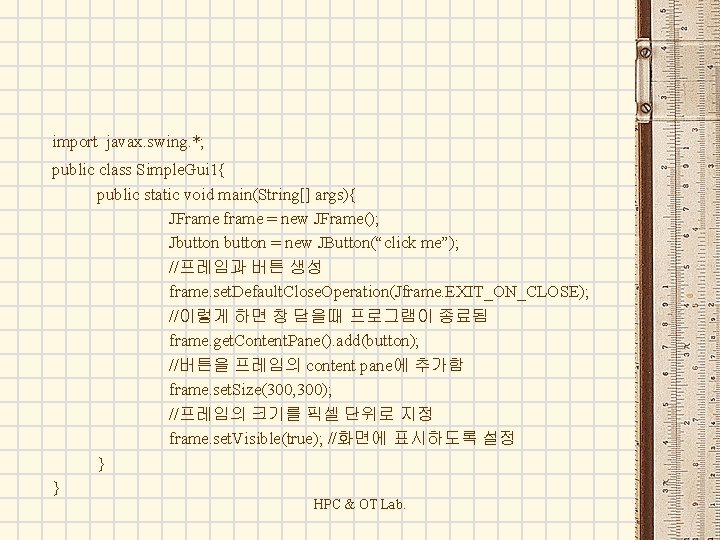 import javax. swing. *;
public class Simple. Gui 1{
public static void main(String[] args){
JFrame frame = new JFrame();
Jbutton button = new JButton(“click me”);
//프레임과 버튼 생성
frame. set. Default. Close. Operation(Jframe. EXIT_ON_CLOSE);
//이렇게 하면 창 닫을때 프로그램이 종료됨
frame. get. Content. Pane(). add(button);
//버튼을 프레임의 content pane에 추가함
frame. set. Size(300, 300);
//프레임의 크기를 픽셀 단위로 지정
frame. set. Visible(true); //화면에 표시하도록 설정
}
}
HPC & OT Lab.